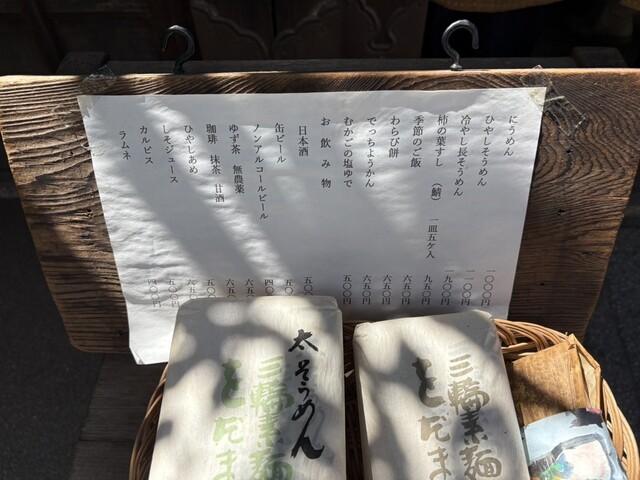 にうめん 一〇〇〇円
ひやしそうめん 一一〇〇円
冷やし長そうめん
柿の葉すし (鯖) 一皿五ケ入 九五〇円
季節のご飯 六五〇円
わらび餅 六五〇円
でっちようかん 六五〇円
むかごの塩ゆで 五〇〇円
お飲み物
日本酒 五〇
缶ビール 五〇
ノンアルコールビール 四〇
ゆず茶 無農薬 六五
珈琲 抹茶 甘酒 六五
ひやしあめ 五〇〇
しそジュース 六五〇
カルピス 五〇〇円
ラムネ 四〇〇円
太そうめん
三輪素麺
をだま
三輪素麺
をだま